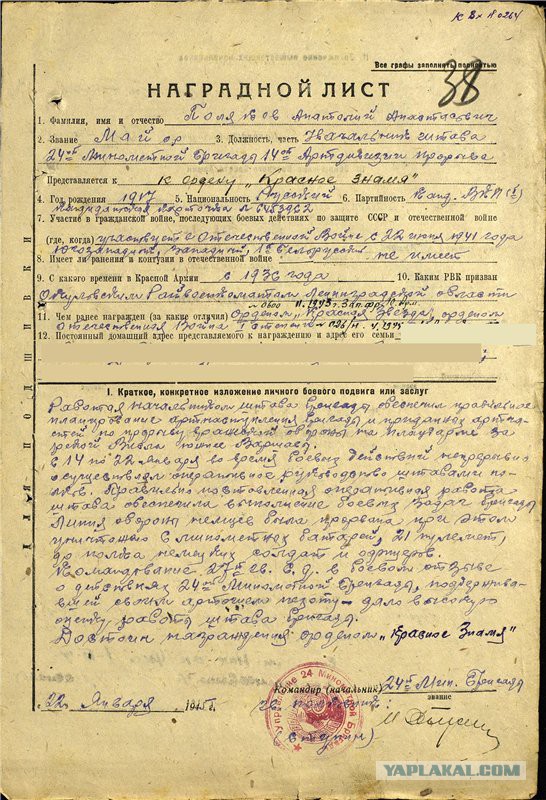 к Вх №0264
Все графы заполнить полностью
38
НАГРАДНОЙ ЛИСТ
1. Фамилия, имя и отчество Поляков Анатолий Анастасович
2. Звание Майор 3. Должность, часть Начальник штаба
24ой Минометной Бригады 14ой Артдивизии прорыва
Представляется к к ордену „Красное знамя"
4. Год рождения 1917 5. Национальность Русский 6. Партийность Канд. ВКП(б)
кандидатская карточка № 6483962
7. Участие в гражданской войне, последующих боевых действиях по защите СССР и отечественной войне
(где, когда) участвует в Отечественной Войне с 22 июня 1941 года
Югозападный, Западный, 1й Белорусский
8. Имеет ли ранения и контузии в отечественной войне не имеет
9. С какого времени в Красной Армии с 1936 года 10. Каким РВК призван
Окуловским Райвоенкоматом Ленинградской области
11. Чем ранее награжден (за какие отличия) Орденом „Красная Звезда", орденом
Отечественная Война
12. Постоянный домашний адрес представляемого к награждению и адрес его семьи
ДЛЯ ПОДШИВКИ
I. Краткое, конкретное изложение личного боевого подвига или заслуг
Работая начальником штаба бригады обеспечил правильное
планирование артнаступления бригады и приданных артча-
стей по прорыву вражеской обороны на плацдарме за
рекой Висла южнее Варшавы.
С 14 по 22 января во время боевых действий непрерывно
осуществлял оперативное руководство штабами пол-
ков. Правильно поставленная оперативная работа
штаба обеспечила выполнение боевых задач бригады
Линия обороны немцев была прорвана при этом
уничтожено 8 минометных батарей, 21 пулемет,
до полка немецких солдат и офицеров.
Командование 27ой гв. С.Д. в боевом отзыве
о действиях 24ой Минометной Бригады, поддерживав-
шей своим артогнем пехоту – дало высокую
оценку работы штаба бригады.
Достоин награждения орденом „Красное Знамя"
Командир (начальник) 24ой Мин. Бригады
звание
гв. полковник
22 Января 1945 г.
Управление 24 Минометной Бригады
YAPLAKAL.COM